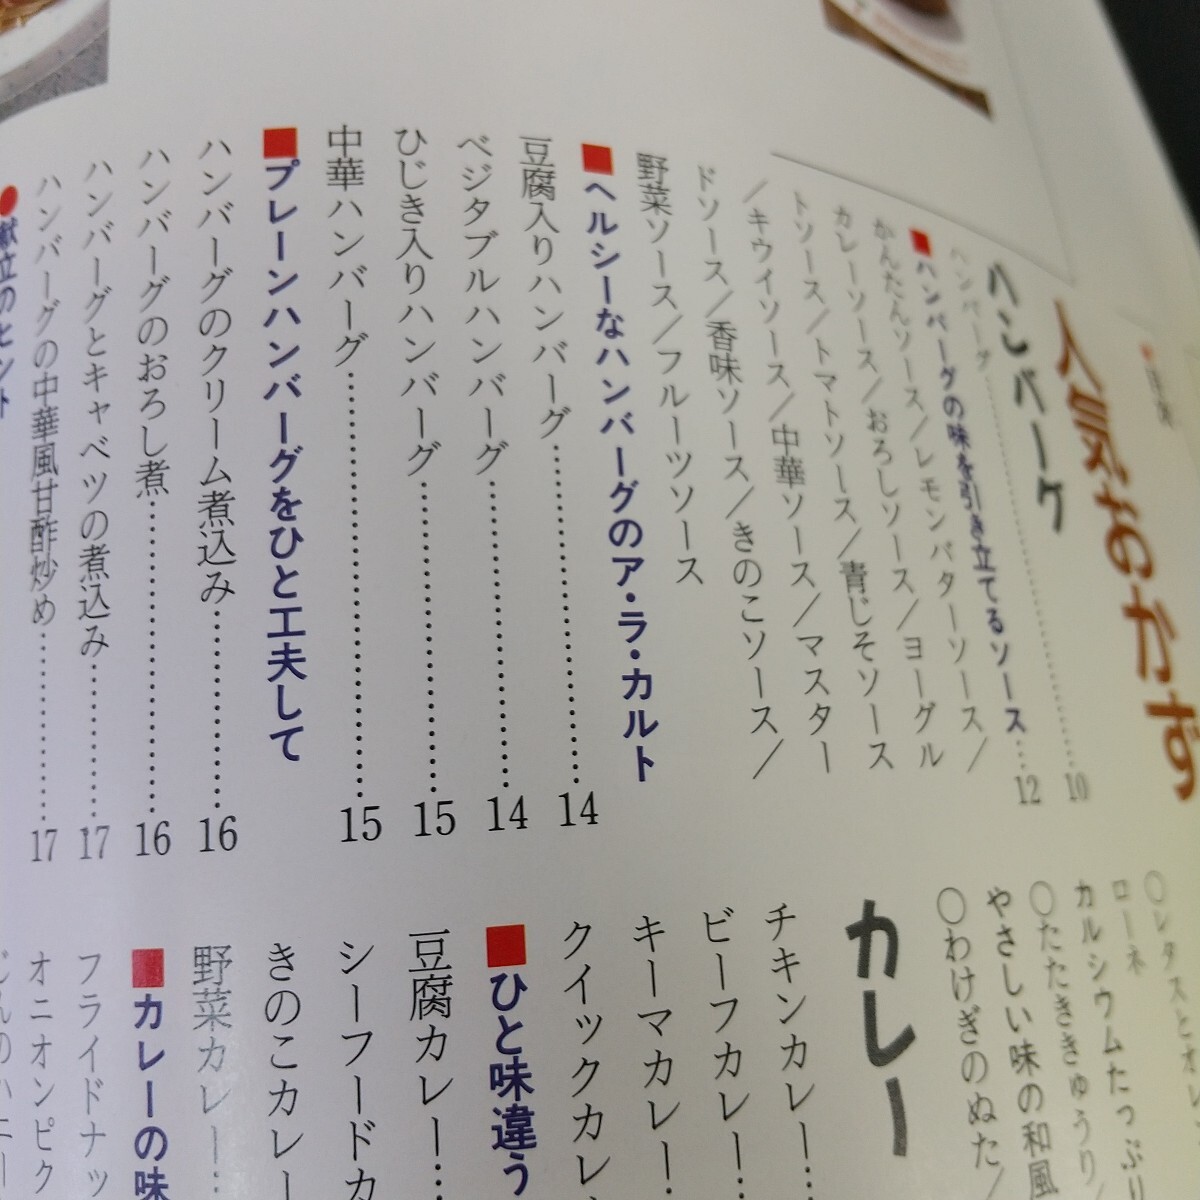 人気おかず
ハンバーグ
ハンバーグ……10
■ハンバーグの味を引き立てるソース…12
かんたんソース／レモンバターソース／
カレーソース／おろしソース／ヨーグル
トソース／トマトソース／青じそソース
／キウイソース／中華ソース／マスター
ドソース／香味ソース／きのこソース／
野菜ソース／フルーツソース
■ヘルシーなハンバーグのア・ラ・カルト
豆腐入りハンバーグ……14
ベジタブルハンバーグ……14
ひじき入りハンバーグ……15
中華ハンバーグ……15
■プレーンハンバーグをひと工夫して
ハンバーグのクリーム煮込み……16
ハンバーグのおろし煮……16
ハンバーグとキャベツの煮込み……17
ハンバーグの中華風甘酢炒め……17
●献立のヒント
○レタスとオレ
ローネ
カルシウムたっぷり
○たたききゅうり／
やさしい味の和風
○わけぎのぬた／
カレー
チキンカレー…
ビーフカレー…
キーマカレー…
クイックカレ
■ひと味違う
豆腐カレー…
シーフードカ
きのこカレー
野菜カレー…
■カレーの味
フライドナッ
オニオンピク